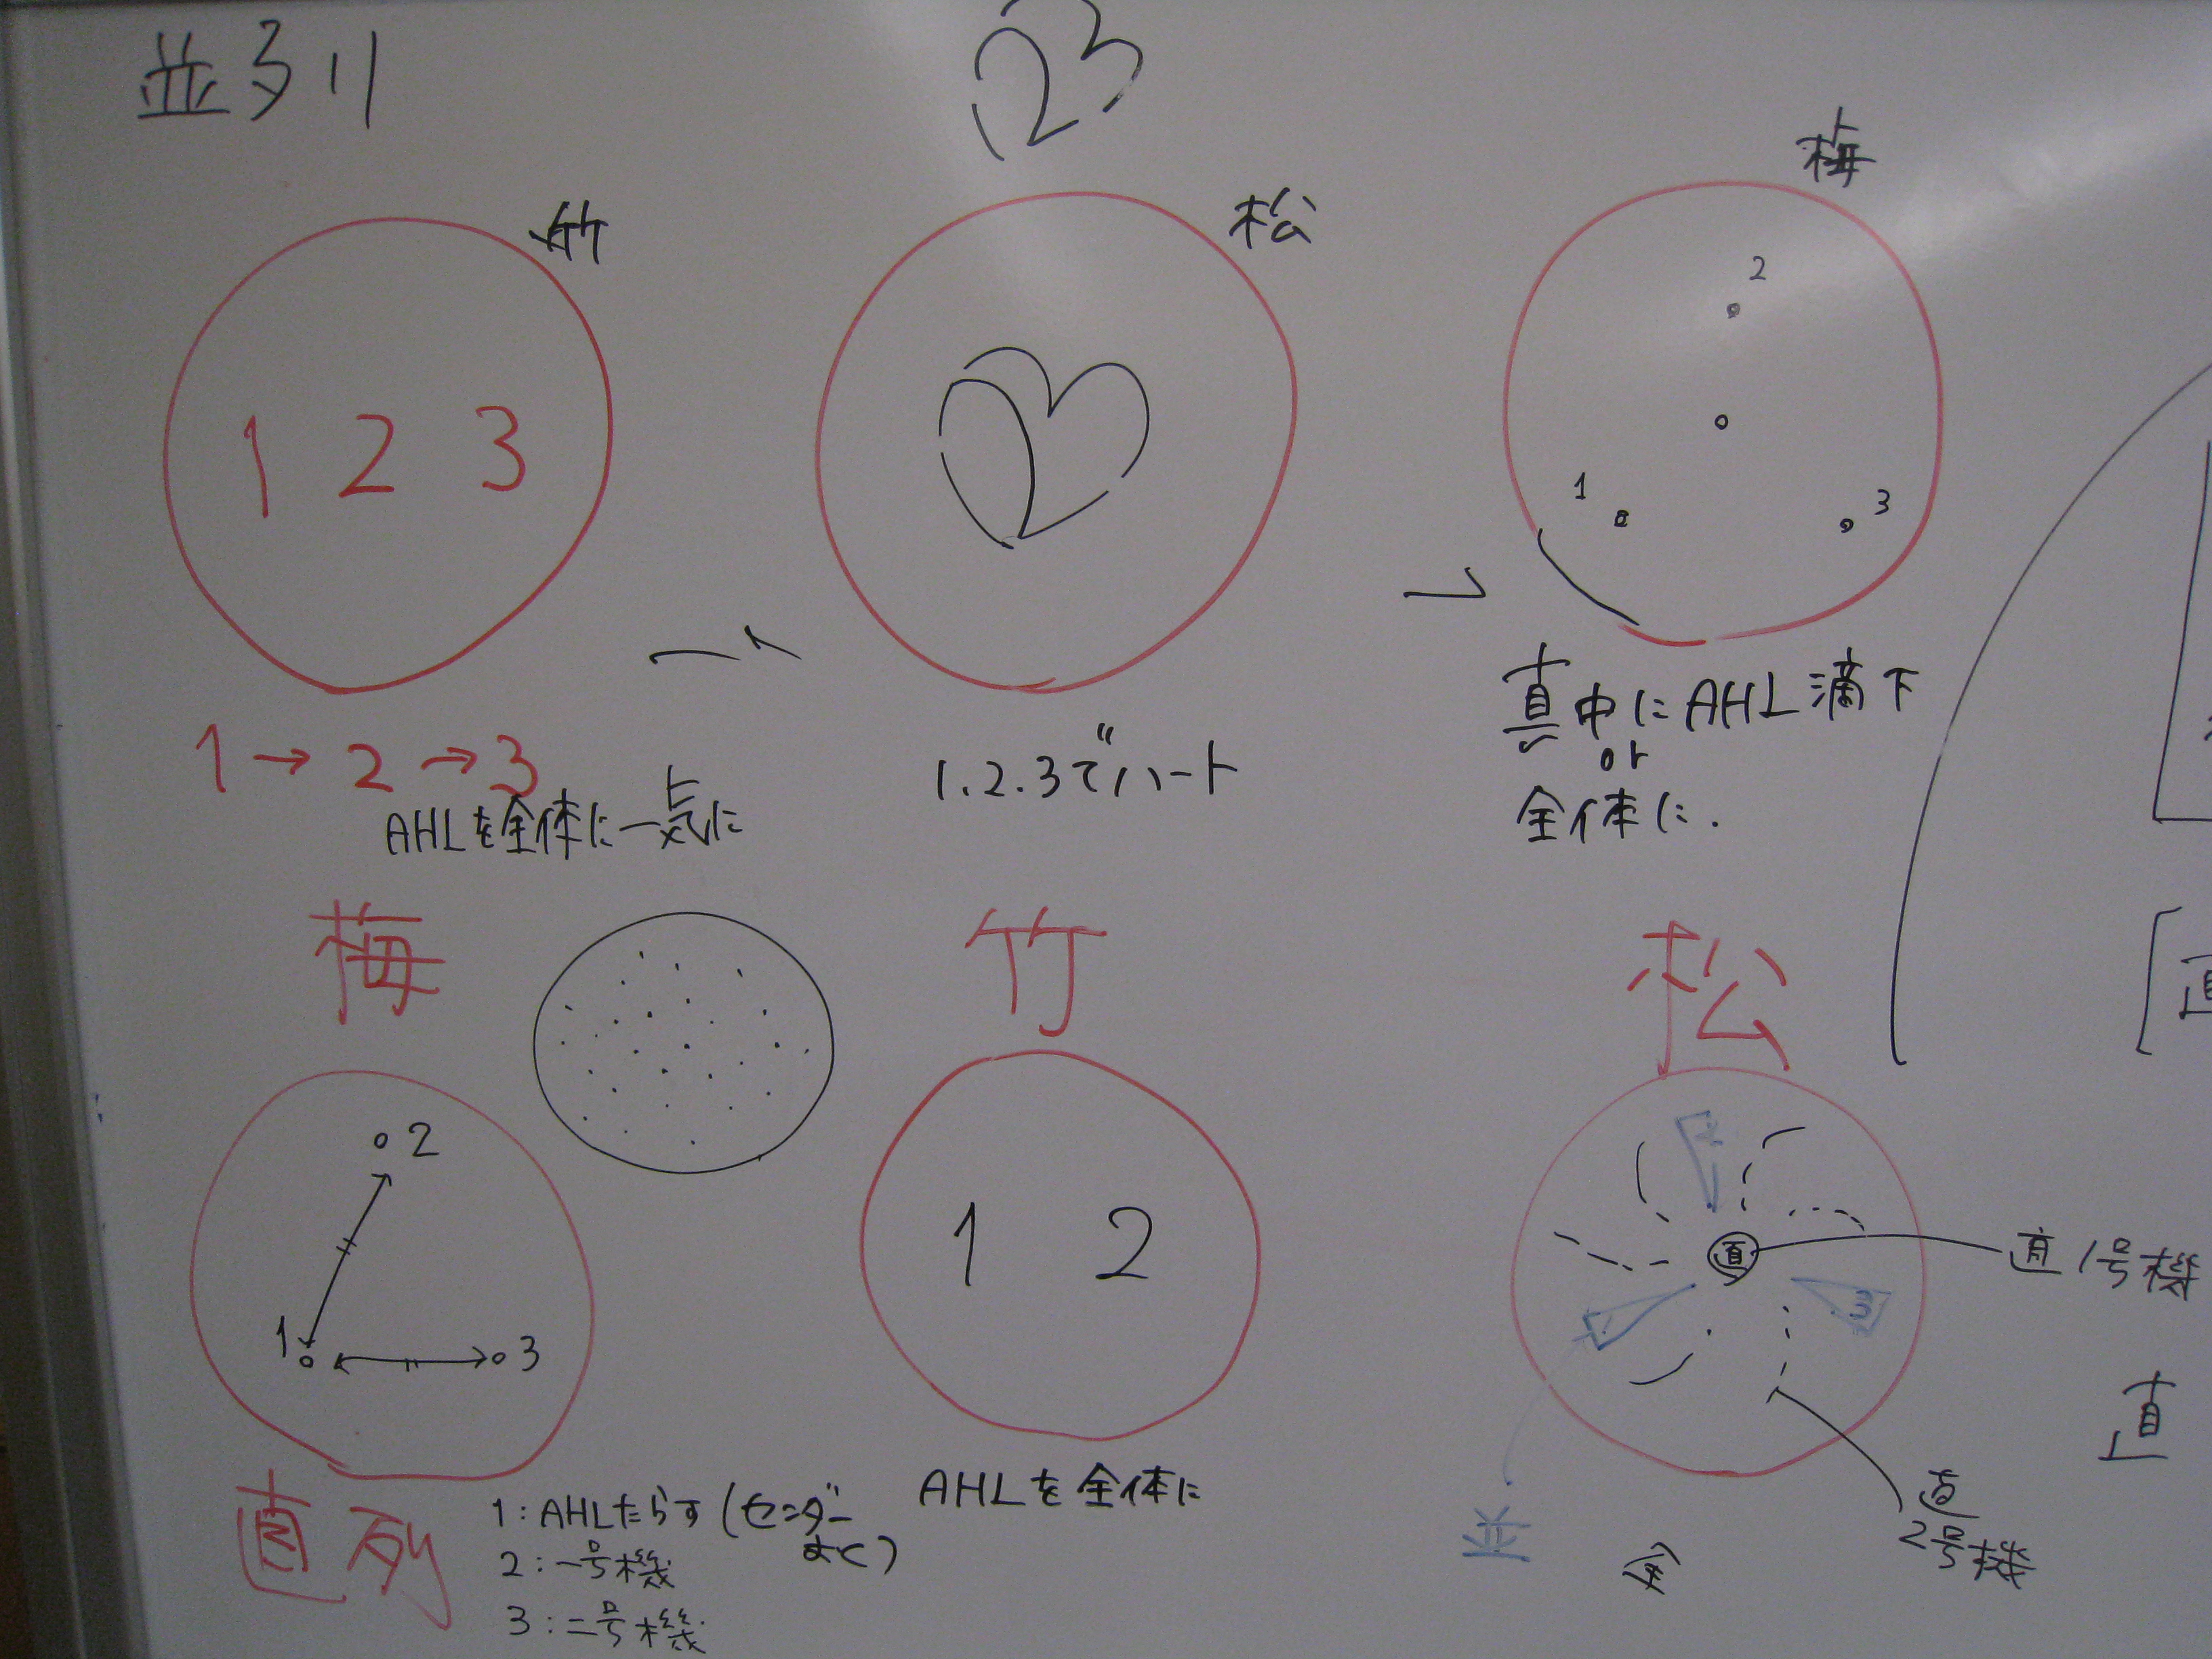 並列
123
竹
松
梅
1 2 3
2
1
3
1→2→3
AHLを全体に一気に
1.2.3でハート
真中にAHL滴下
or
全体に.
梅
竹
松
2
1
3
1 2
2
1
3
直
直1号機
直
2号機
直
並
全
AHLを全体に
直列
1:AHLたらす(センダー
おく)
2:一号機
3:二号機